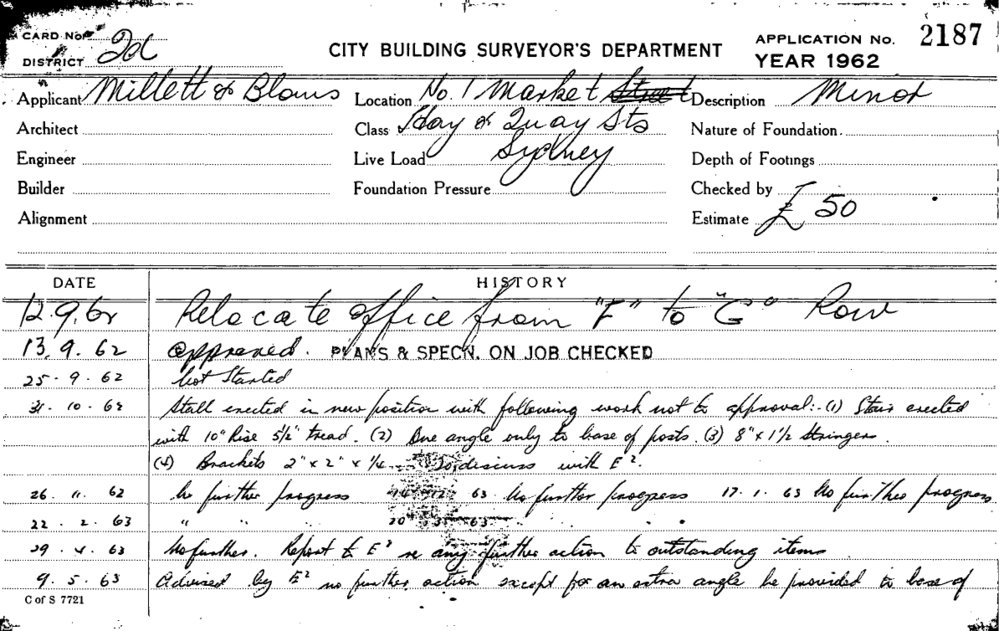 CARD No.
DISTRICT 2d
CITY BUILDING SURVEYOR'S DEPARTMENT
APPLICATION No. 2187
YEAR 1962
Applicant Millett & Blows
Location No. 1 Market Street
Description Minor
Architect
Class Hay & Quay Sts
Nature of Foundation.
Engineer
Live Load Sydney
Depth of Footings
Builder
Foundation Pressure
Checked by
Alignment
Estimate £ 50
DATE HISTORY
12.9.62 Relocate office from "F" to "G" Row
13.9.62 approved. PLANS & SPECN. ON JOB CHECKED
25.9.62 Not Started
31.10.62 Stall erected in new position with following work not to approval:- (1) Stair erected
with 10" Rise 5½" tread. (2) One angle only to base of posts. (3) 8" x 1½ Stringers.
(4) Brackets 2" x 2" x ¼ To discuss with E².
26.11.62 No further progress 63 No further progress 17.1.63 No further progress.
22.2.63 " " 63 "
29.4.63 No further. Report to E² re any further action to outstanding items
9.5.63 Advised by E² no further action except for an extra angle be provided to base of
C of S 7721